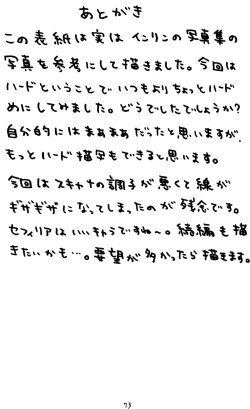 あとがき
この表紙は実はインリンの写真集の
写真を参考にして描きました。今回は
ハードということでいつもよりちょっとハード
めにしてみました。どうでしたでしょうか?
自分的にはまあまあだったと思いますが、
もっとハード描写もできると思います。
今回はスキャナの調子が悪くて線が
ギザギザになってしまったのが残念です。
セフィリアはいいキャラですね〜。続編も描
きたいかも…。要望が多かったら描きます。
73